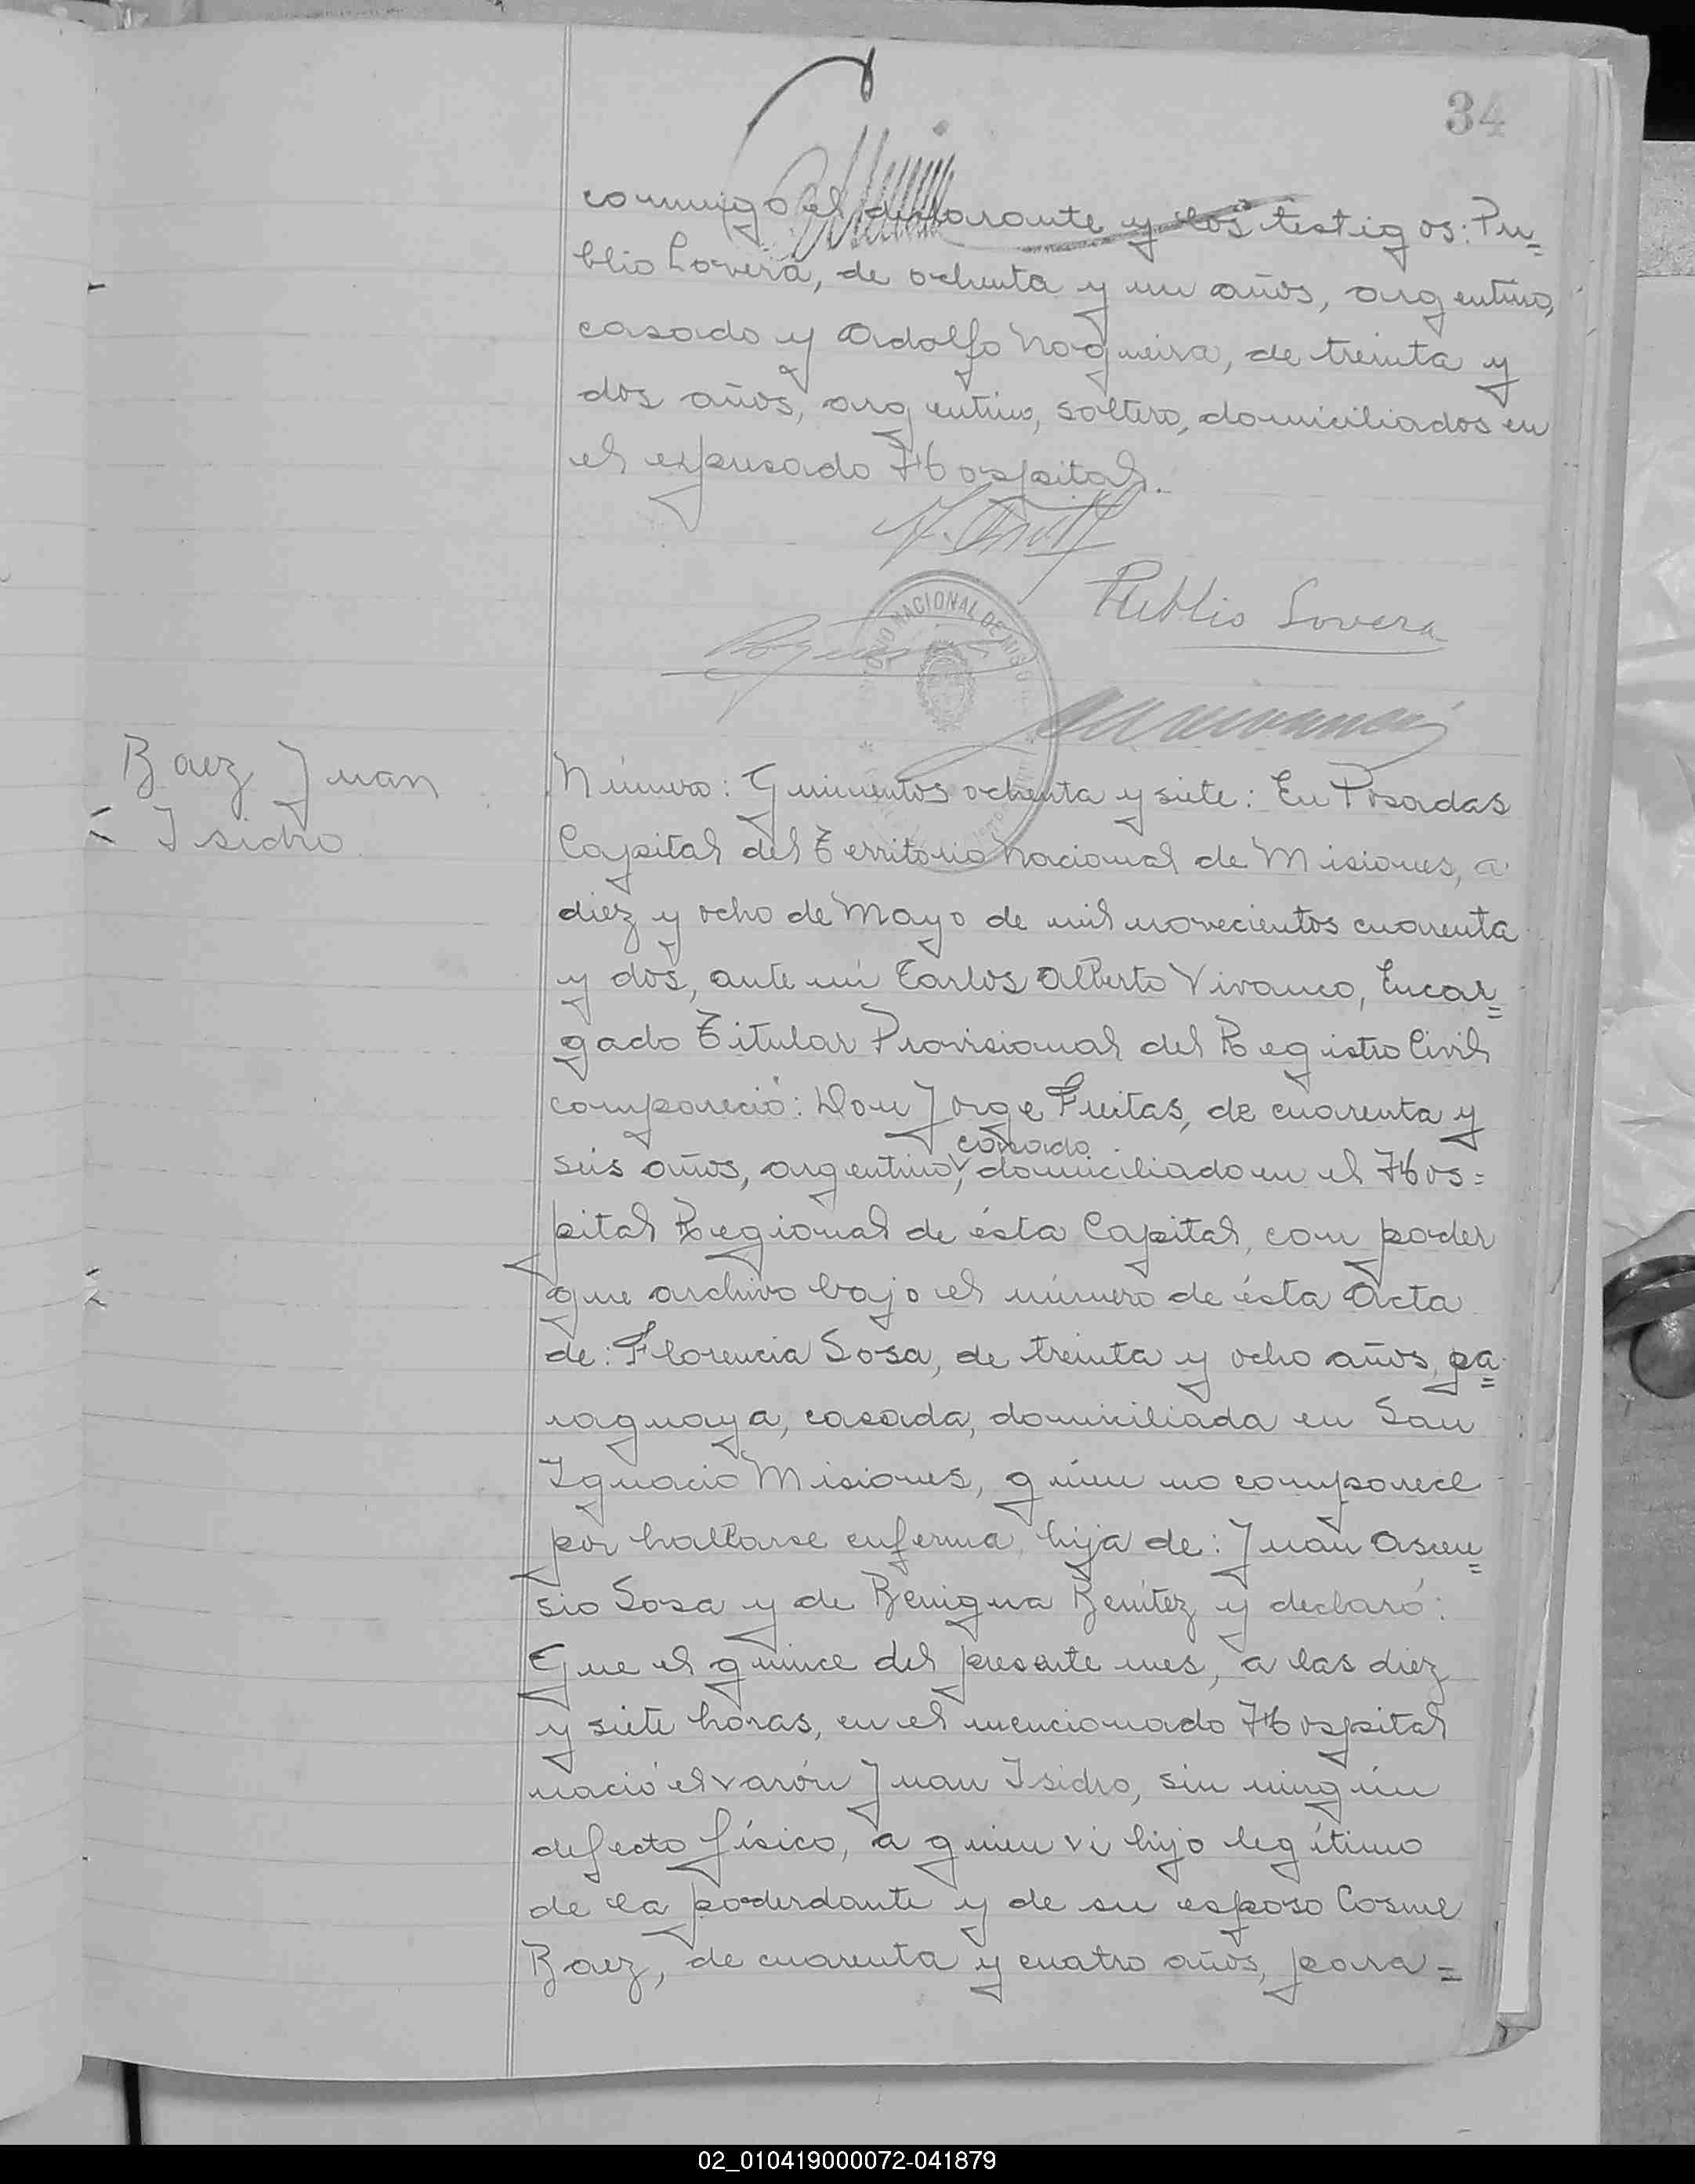 34
conmigo el declarante y los testigos: Pu=
blio Lovera, de ochenta y un años, argentino,
casado y Adolfo Nogueira, de treinta y
dos años, argentino, soltero, domiciliados en
el expresado Hospital.
Publio Lovera
NACIONAL DE MIS
Baez Juan
Isidro
Número: Quinientos ochenta y siete: En Posadas
Capital del Territorio Nacional de Misiones, a
diez y ocho de Mayo de mil novecientos cuarenta
y dos, ante mi Carlos Alberto Vivanco, Encar=
gado Titular Provisional del Registro Civil
compareció: Don Jorge Freitas, de cuarenta y
casado
seis años, argentino, domiciliado en el Hos=
pital Regional de ésta Capital, con poder
que archivo bajo el número de ésta Acta
de: Florencia Sosa, de treinta y ocho años, pa=
raguaya, casada, domiciliada en San
Ignacio Misiones, quien no comparece
por hallarse enferma, hija de: Juan Ascen=
sio Sosa y de Benigna Benítez y declaró:
Que el quince del presente mes, a las diez
y siete horas, en el mencionado Hospital
nació el varón Juan Isidro, sin ningún
defecto físico, a quien vi hijo legítimo
de la poderdante y de su esposo Cosme
Baez, de cuarenta y cuatro años, para=
02_010419000072-041879